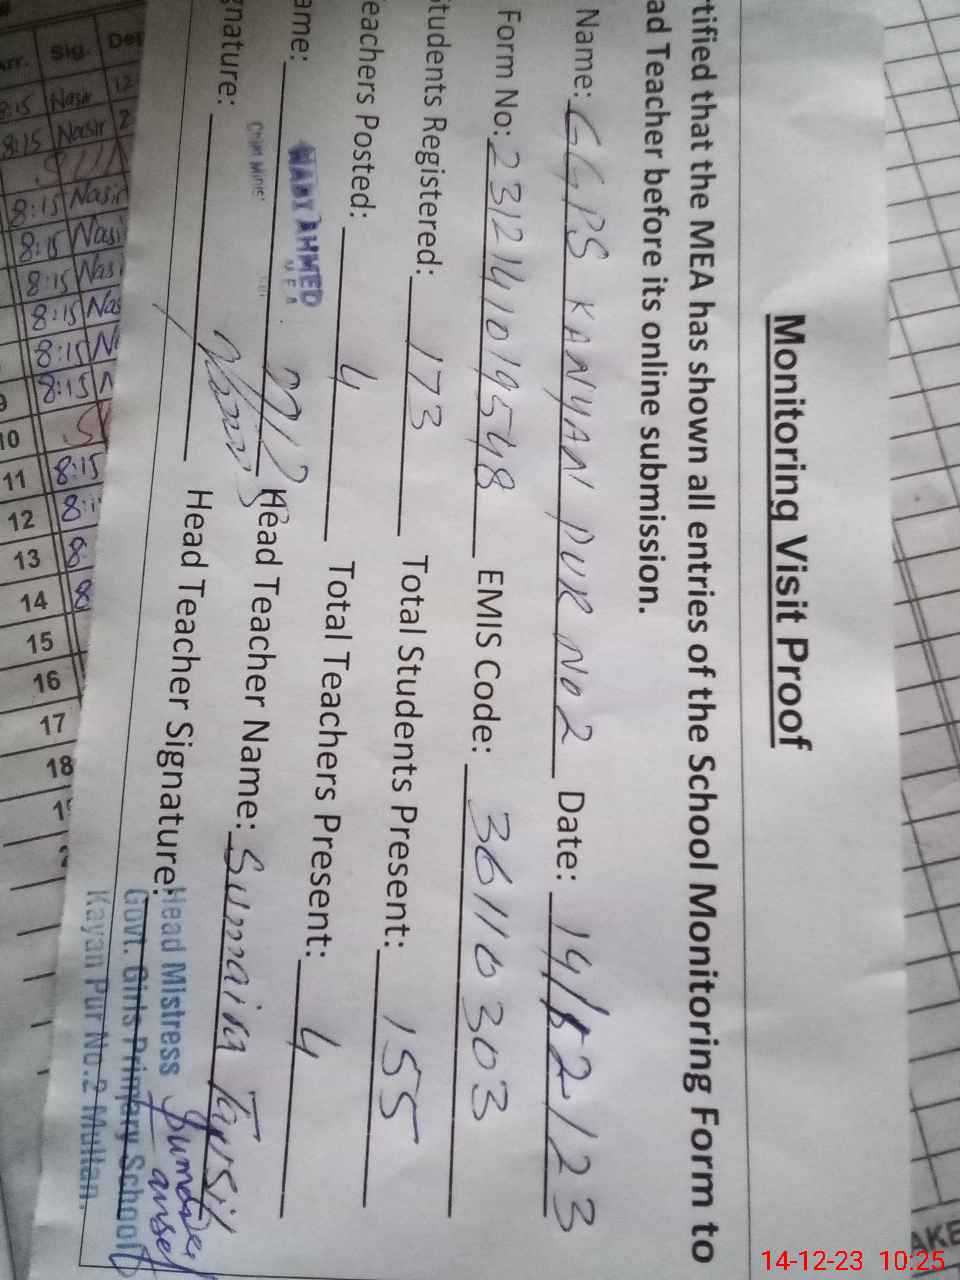 Monitoring Visit Proof
tified that the MEA has shown all entries of the School Monitoring Form to
ad Teacher before its online submission.
Name: GGPS KANYAN PUR NO 2 Date: 14/12/23
Form No: 23121410195948 EMIS Code: 36110303
tudents Registered: 173 Total Students Present: 155
eachers Posted: 4 Total Teachers Present: 4
ame: AHMED MEA Head Teacher Name: Sumaira
gnature: Head Teacher Signature:
Head Mistress
Govt. Girls Primary School
Kayan Pur No.2 Multan.
Arr. Sig. Dep
8:15 Nasir 12
8:15 Nasir 2
8:15 Nasir
8:15 Nasi
8:15 Nasi
8:15 Nas
8:15 N
8:15
10
11 8:15
12
13
14
15
16
17
18
14-12-23 10:25